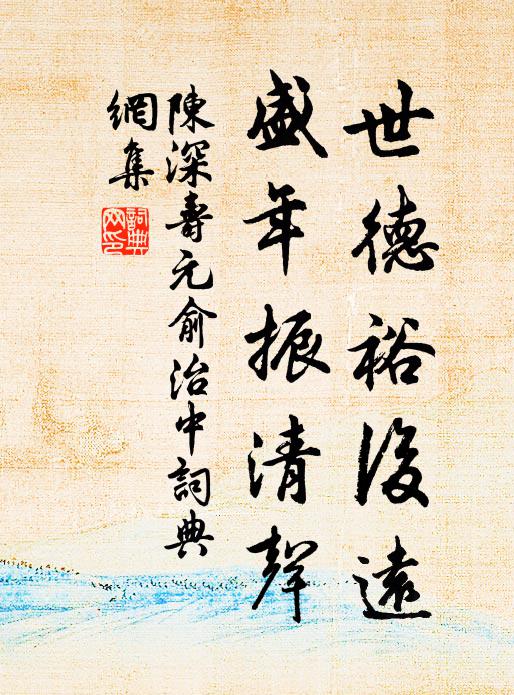 世德裕後遠
盛年振清聲
陳深壽元俞治中詞典
網集
詞典網印